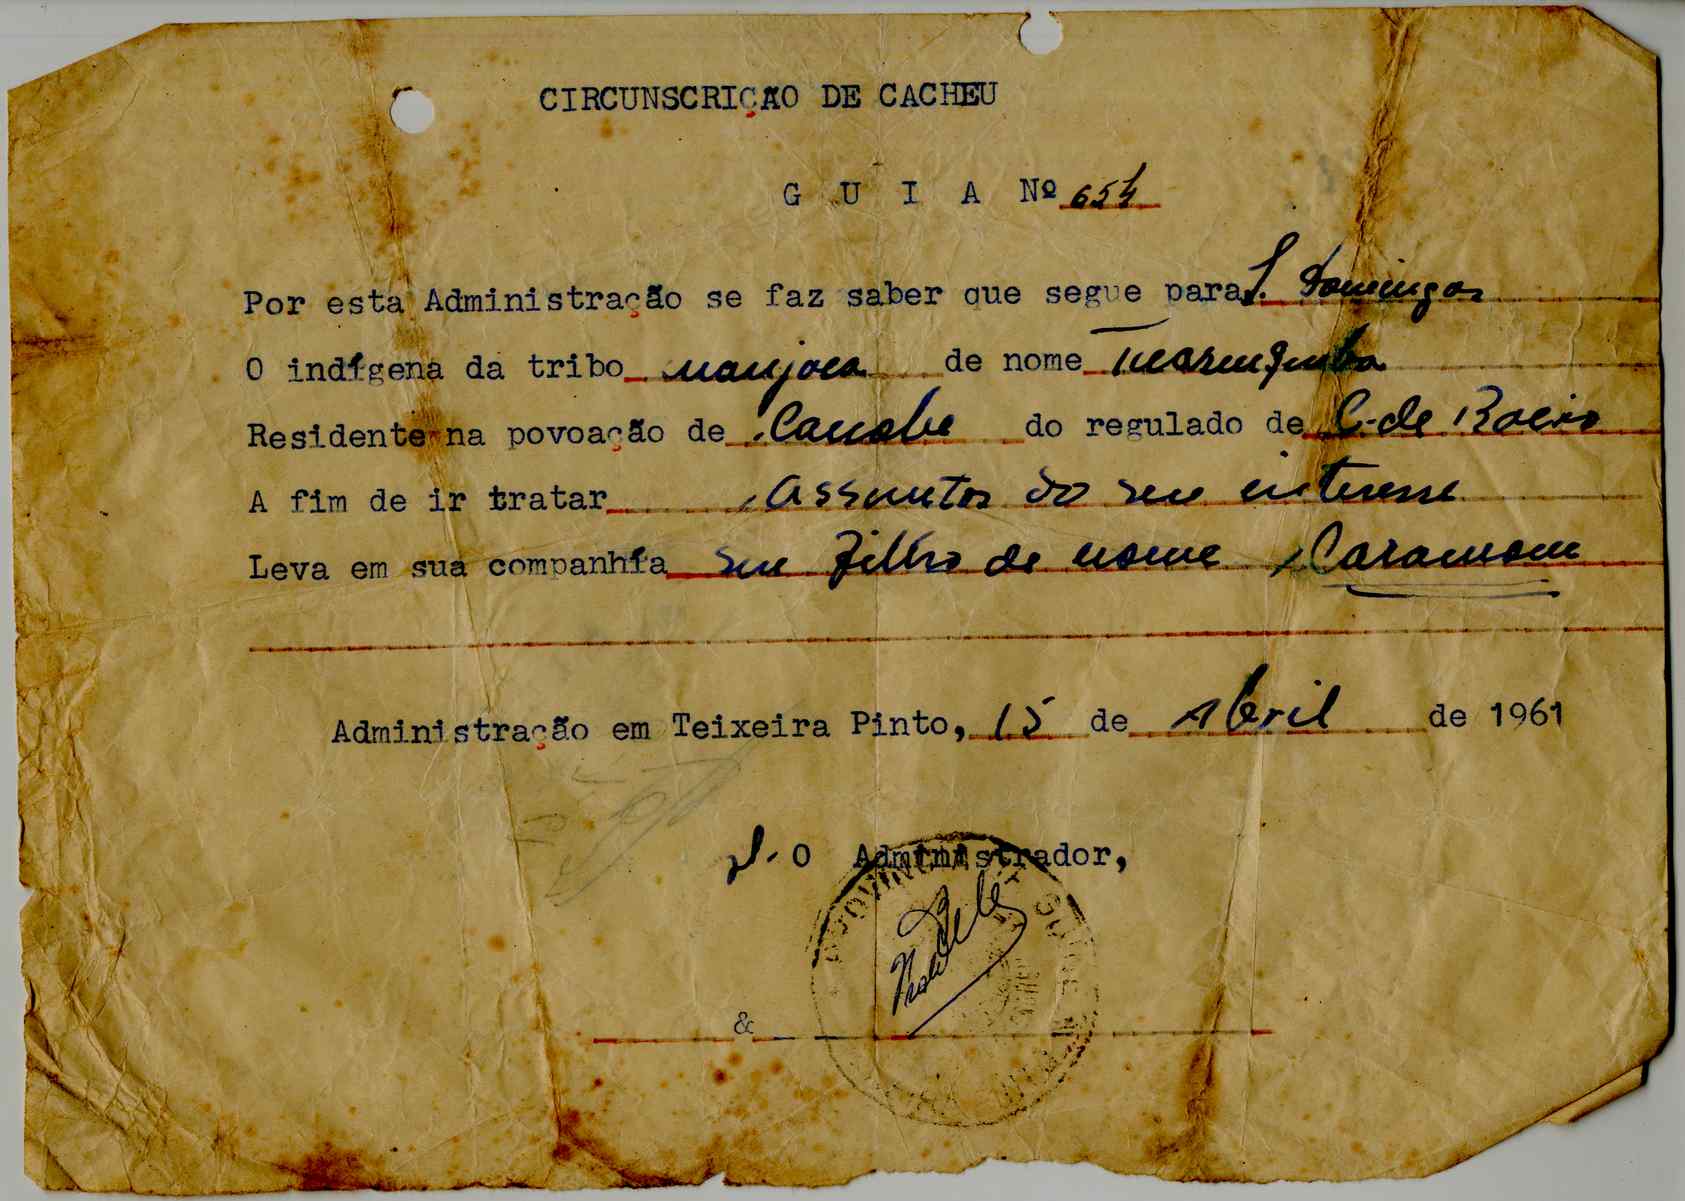 CIRCUNSCRIÇÃO DE CACHEU
G U I A Nº 654
Por esta Administração se faz saber que segue para S. Domingos
O indígena da tribo manjaca de nome
Residente na povoação de Canobe do regulado de C. de Baixo
A fim de ir tratar assuntos do seu interesse
Leva em sua companhia seu filho de nome Caramom
Administração em Teixeira Pinto, 15 de Abril de 1961
O Administrador,
&